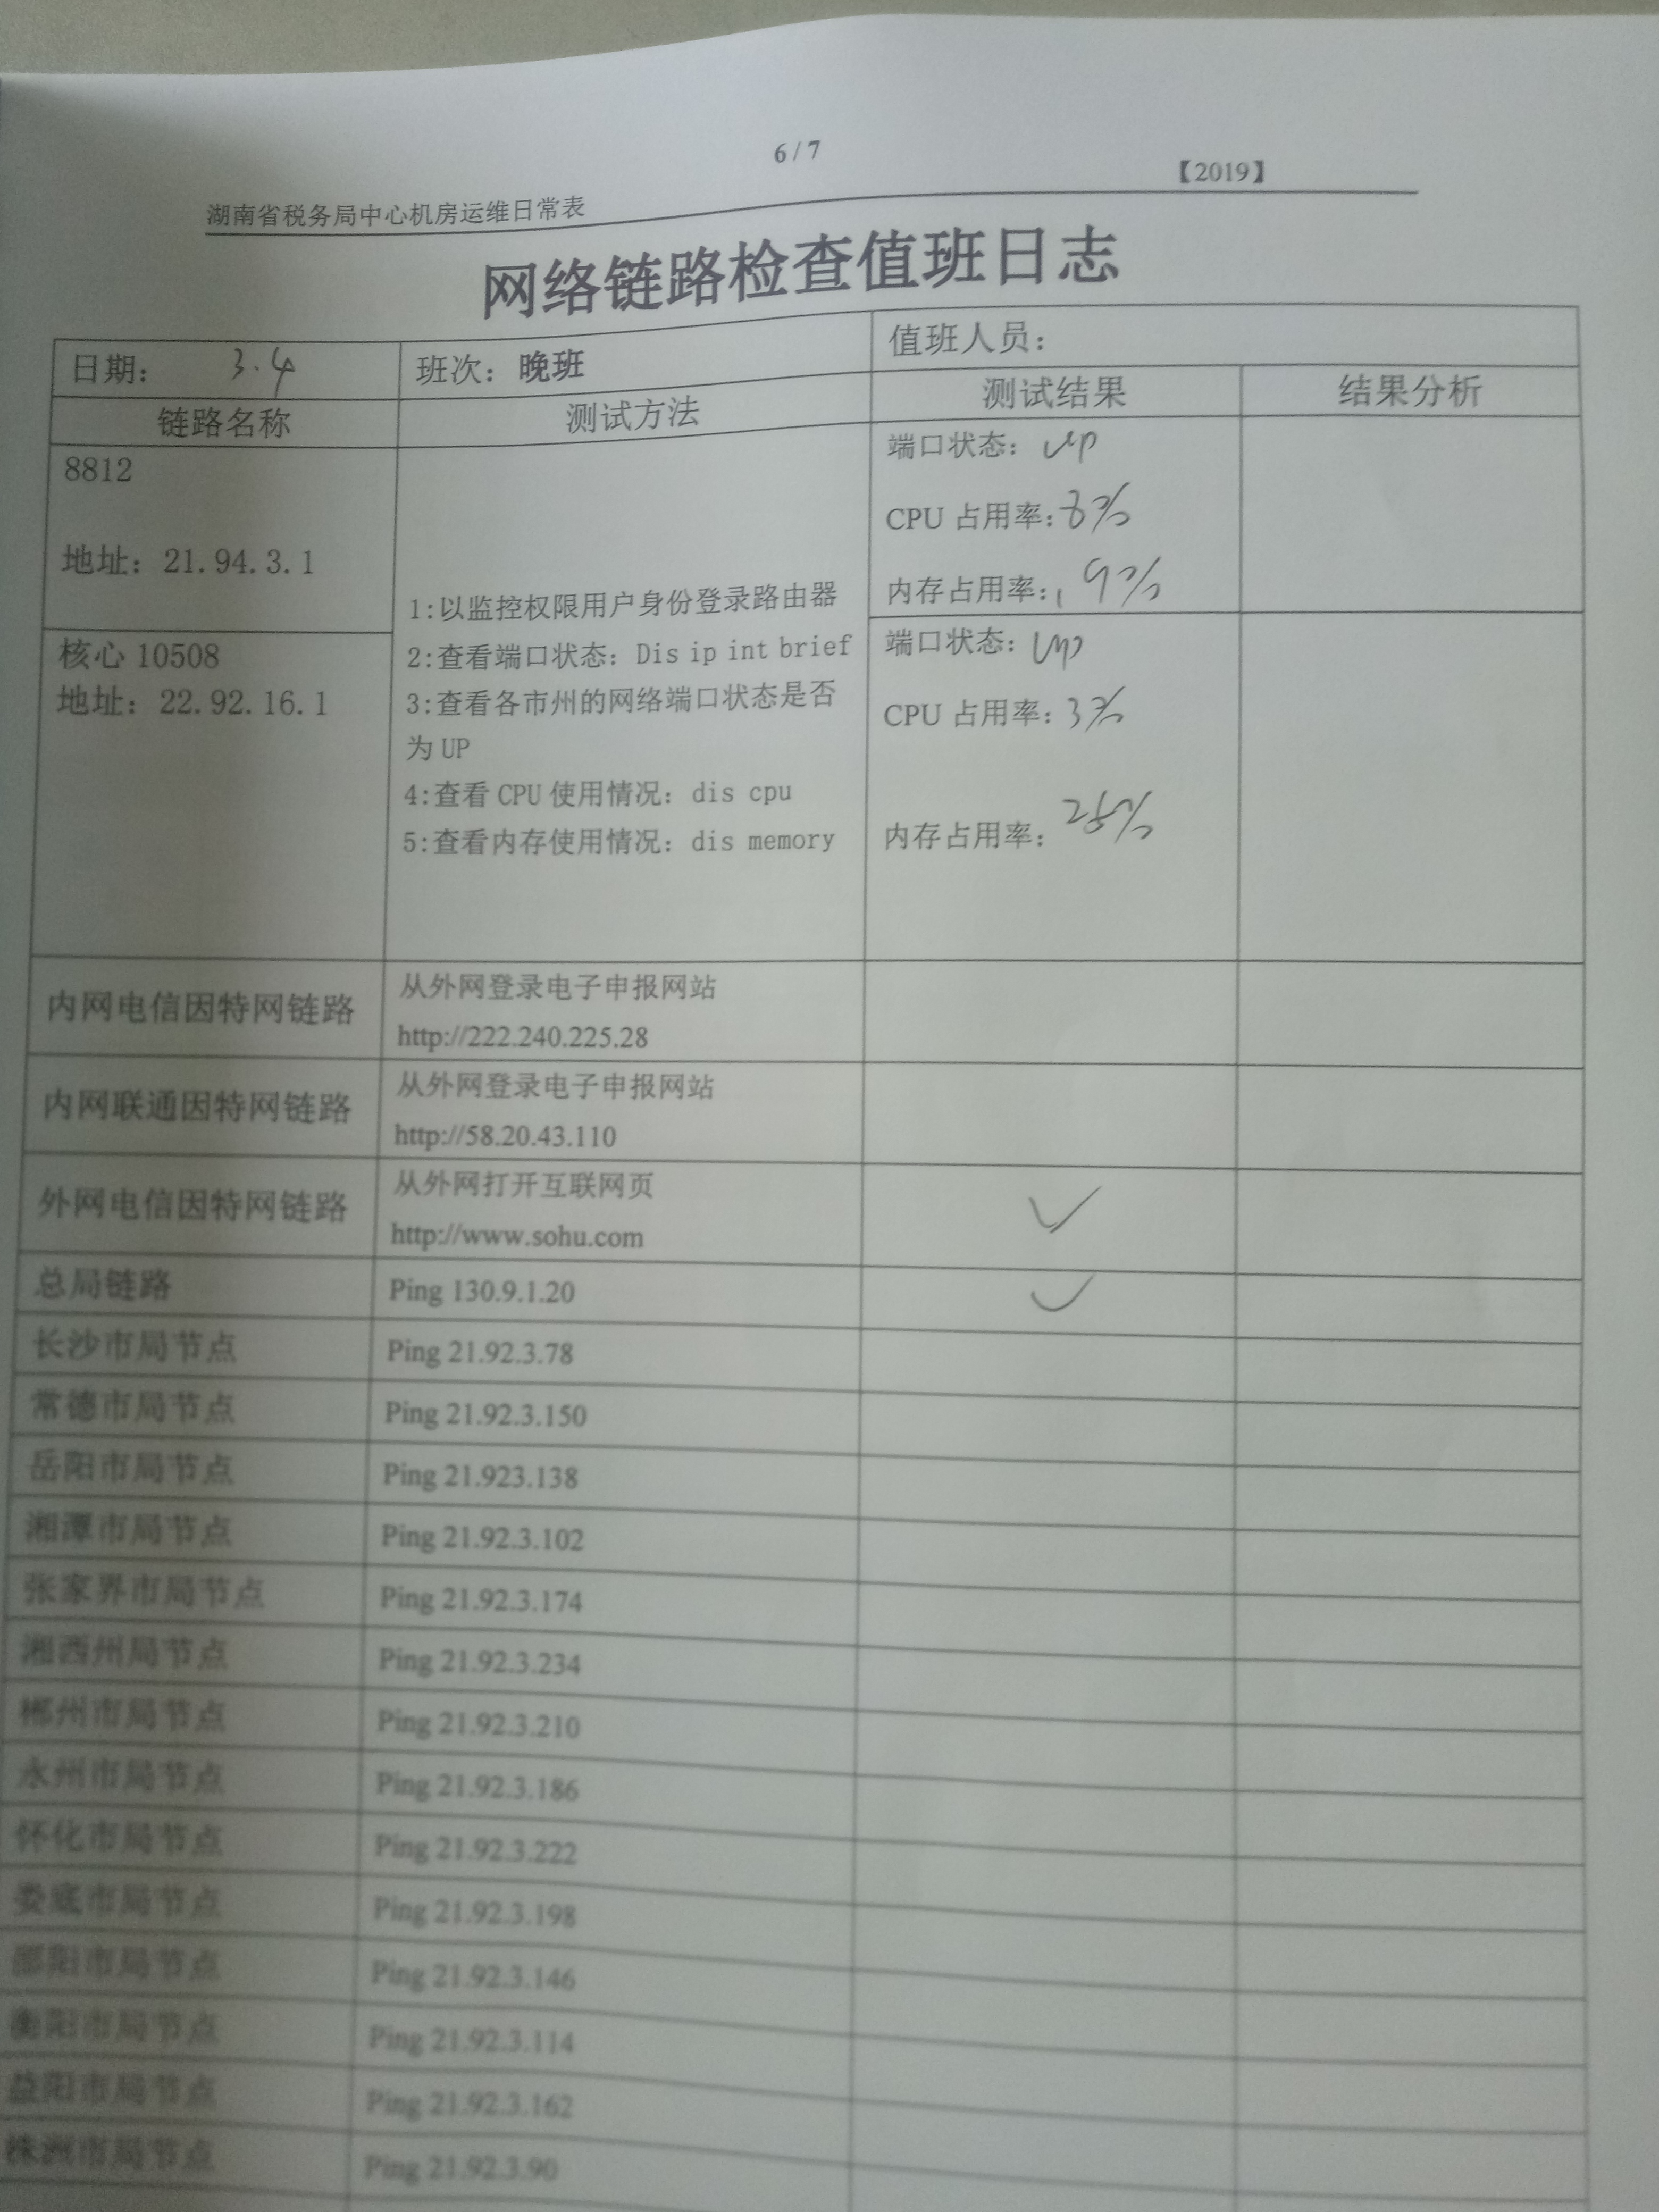 6/7
【2019】
湖南省税务局中心机房运维日常表
网络链路检查值班日志
日期： 3.4 班次：晚班 值班人员：
链路名称 测试方法 测试结果 结果分析
8812
地址：21.94.3.1
核心 10508
地址：22.92.16.1
1:以监控权限用户身份登录路由器
2:查看端口状态：Dis ip int brief
3:查看各市州的网络端口状态是否
为 UP
4:查看 CPU 使用情况：dis cpu
5:查看内存使用情况：dis memory
端口状态：up
CPU 占用率：8%
内存占用率：19%
端口状态：up
CPU 占用率：3%
内存占用率：
内网电信因特网链路 从外网登录电子申报网站
http://222.240.225.28
内网联通因特网链路 从外网登录电子申报网站
http://58.20.43.110
外网电信因特网链路 从外网打开互联网页 ✓
http://www.sohu.com
总局链路 Ping 130.9.1.20 ✓
长沙市局节点 Ping 21.92.3.78
常德市局节点 Ping 21.92.3.150
岳阳市局节点 Ping 21.923.138
湘潭市局节点 Ping 21.92.3.102
张家界市局节点 Ping 21.92.3.174
湘西州局节点 Ping 21.92.3.234
郴州市局节点 Ping 21.92.3.210
永州市局节点 Ping 21.92.3.186
怀化市局节点 Ping 21.92.3.222
娄底市局节点 Ping 21.92.3.198
邵阳市局节点 Ping 21.92.3.146
衡阳市局节点 Ping 21.92.3.114
益阳市局节点 Ping 21.92.3.162
株洲市局节点 Ping 21.92.3.90